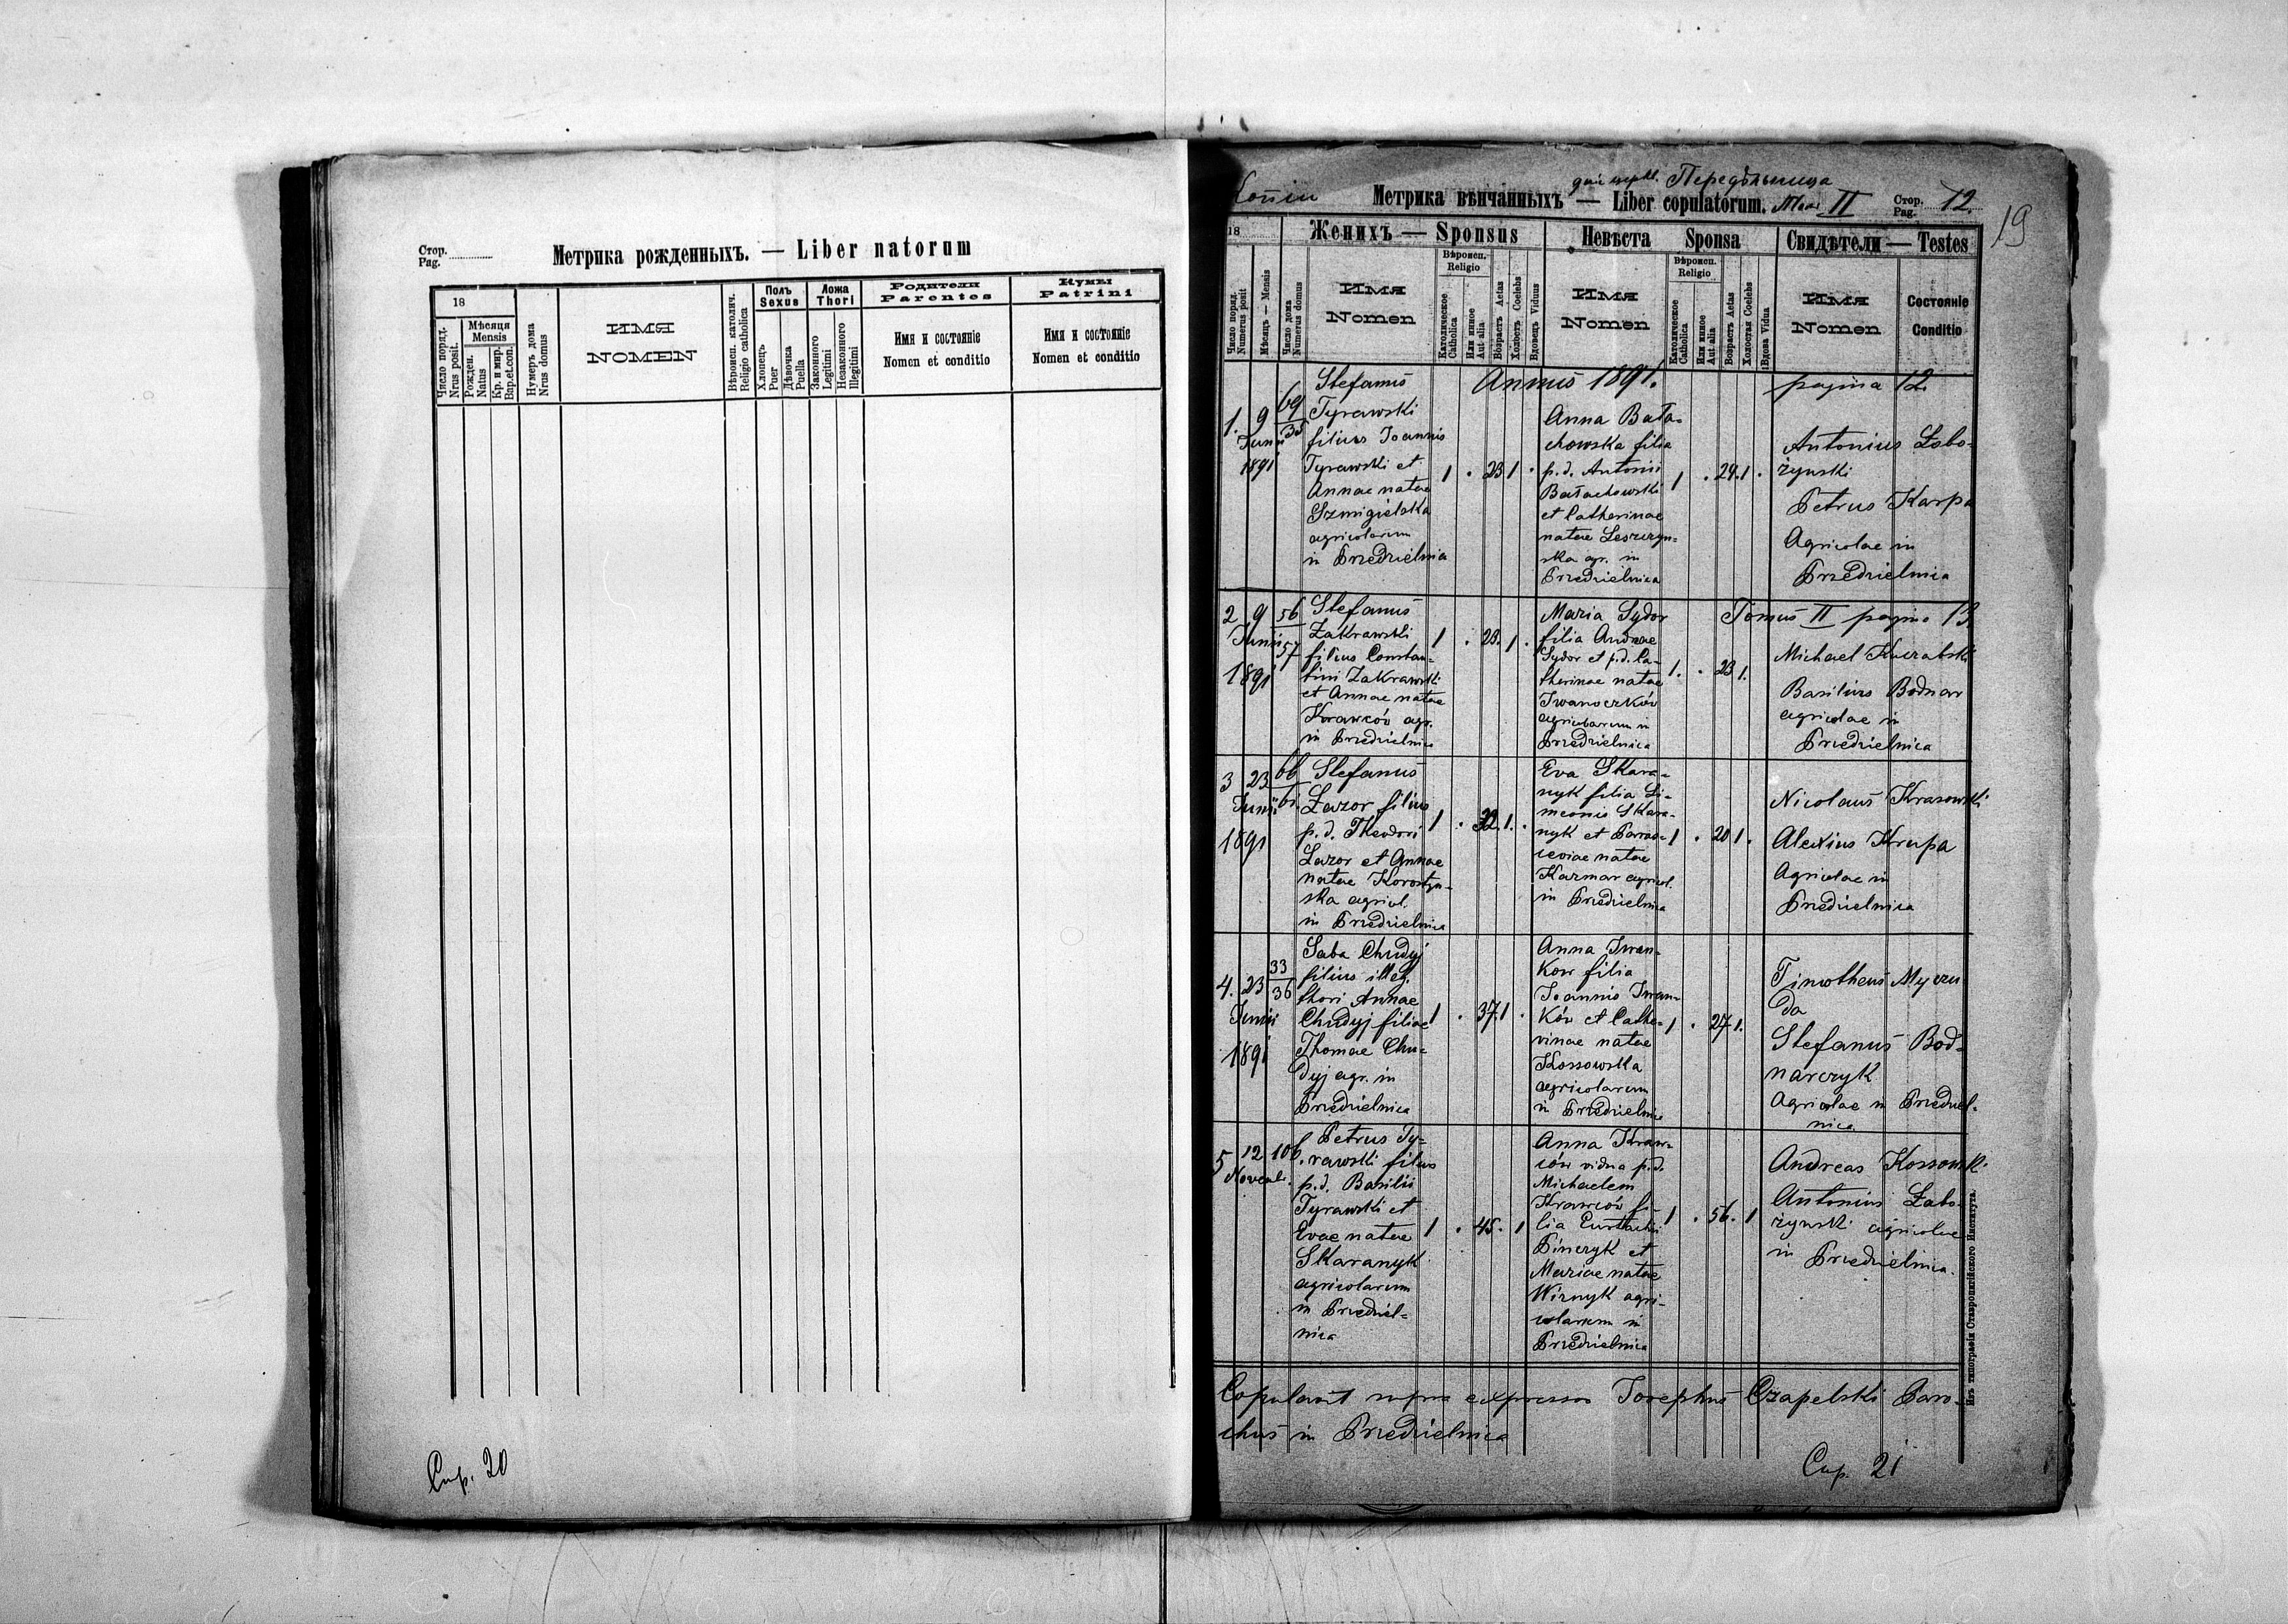 Стор.
Pag.
Метрика рожденныхъ. — Liber natorum
18
Число поряд.
Nrus posit.
Мѣсяця
Mensis
Рожден.
Natus
Кр. и мир.
Bap. et con.
Нумеръ дома
Nrus domus
ИМЯ
NOMEN
Вѣроисп. католич.
Religio catholica
Полъ
Sexus
Хлопецъ
Puer
Дѣвочка
Puella
Ложа
Thori
Законного
Legitimi
Незаконного
Illegitimi
Родители
Parentes
Имя и состояніе
Nomen et conditio
Кумы
Patrini
Имя и состояніе
Nomen et conditio
Стр. 20
Копія
для церкв. Передѣльница
Метрика вѣнчанныхъ — Liber copulatorum. II
Стор.
Pag. 12.
19
18
Женихъ — Sponsus
Невѣста Sponsa
Свидѣтели — Testes
Число поряд.
Numerus posit
Мѣсяцъ — Mensis
Число дома
Numerus domus
Имя
Nomen
Вѣроисп.
Religio
Католическое
Catholica
Или инное
Aut alia
Возрастъ Aetas
Холостъ Coelebs
Вдовецъ Viduus
Имя
Nomen
Вѣроисп.
Religio
Католическое
Catholica
Или инное
Aut alia
Возрастъ Aetas
Холостая Coelebs
Вдова Vidua
Имя
Nomen
Состояніе
Conditio
Annus 1891.
pagina 12.
1. 9 Junii 1891
69
35
Stefanus
Tyrawski
filius Joannis
Tyrawski et
Annae natae
Szmigielska
agricolarum
in Przedzielnica
1 . 23 1 .
Anna Bała-
chowska filia
p.d. Antonii
Bałachowski
et Catherinae
natae Leszczyn-
ska agr. in
Przedzielnica
1 . 24. 1 .
Antonius Łabo-
żynski
Petrus Karpa
Agricolae in
Przedzielnica
2 9 Junii 1891
56
57
Stefanus
Zakrawski
filius Constan-
tini Zakrawski
et Annae natae
Krawców agr.
in Przedzielnica
1 . 23. 1 .
Maria Sydor
filia Andreae
Sydor et p.d. Ca-
therinae natae
Iwanoczków
agricolarum in
Przedzielnica
1. . 23 1.
Tomus II pagina 13
Michael Kuczabski
Basilius Bodnar
agricolae in
Przedzielnica
3 23 Junii 1891
66
61
Stefanus
Łazor filius
p.d. Theodori
Lazor et Annae
natae Korostyn-
ska agricol.
in Przedzielnica
1 . 32. 1. .
Eva Skara-
nyk filia Si-
meonis Skara-
nyk et Paras-
ceviae natae
Kazmar agricol.
in Przedzielnica
1 . 20 1 .
Nicolaus Krasowski
Alexius Krupa
Agricolae in
Przedzielnica
4. 23 Junii 1891
33
36
Saba Chudyj
filius illeg.
thori Annae
Chudyj filiae
Thomae Chu-
dyj agr. in
Przedzielnica
1 . 37. 1 .
Anna Iwan-
kow filia
Joannis Iwan-
ków et Cathe-
rinae natae
Kossowska
agricolarum
in Przedzielnica
1 . 27 1.
Timotheus Myczu
da
Stefanus Bod-
narczyk
Agricolae in Przedziel-
nica
5 12 Novemb.
106.
Petrus Ty-
rawski filius
p.d. Basilii
Tyrawski et
Evae natae
Skaranyk
agricolarum
in Przedziel-
nica
1 . 45. 1
Anna Kraw-
ców vidua p.d.
Michaelem
Krawców fi-
lia Eustachii
Pinczyk et
Mariae natae
Wirnyk agri-
colarum in
Przedzielnica
1 . 56. 1
Andreas Kossowski
Antonius Łabo-
żynski agricolae
in Przedzielnica.
Copulavit supra expressos Josephus Czapelski Paro-
chus in Przedzielnica
Стр. 21
Изъ типографіи Ставропигійского Института.